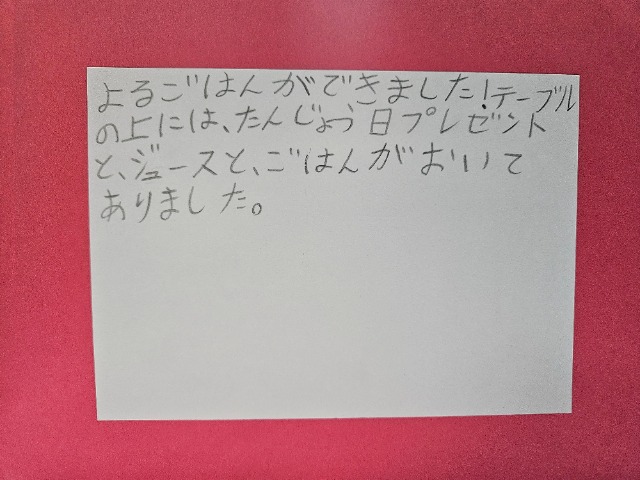 よるごはんができました!テーブル
の上には、たんじょう日プレゼント
と、ジュースと、ごはんがおいて
ありました。